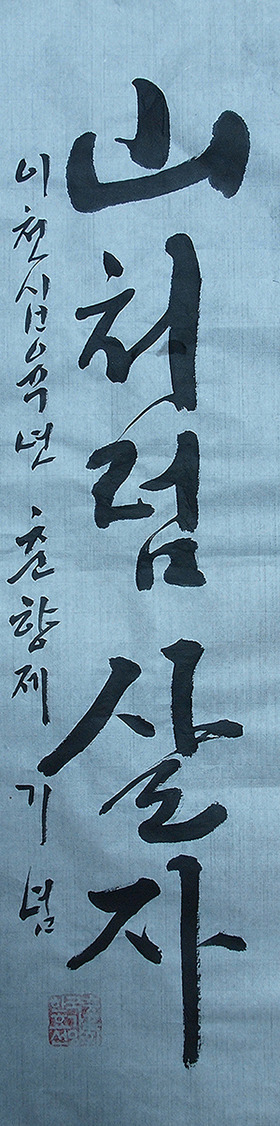 山처럼 살자
이천십육년 춘향제 기념